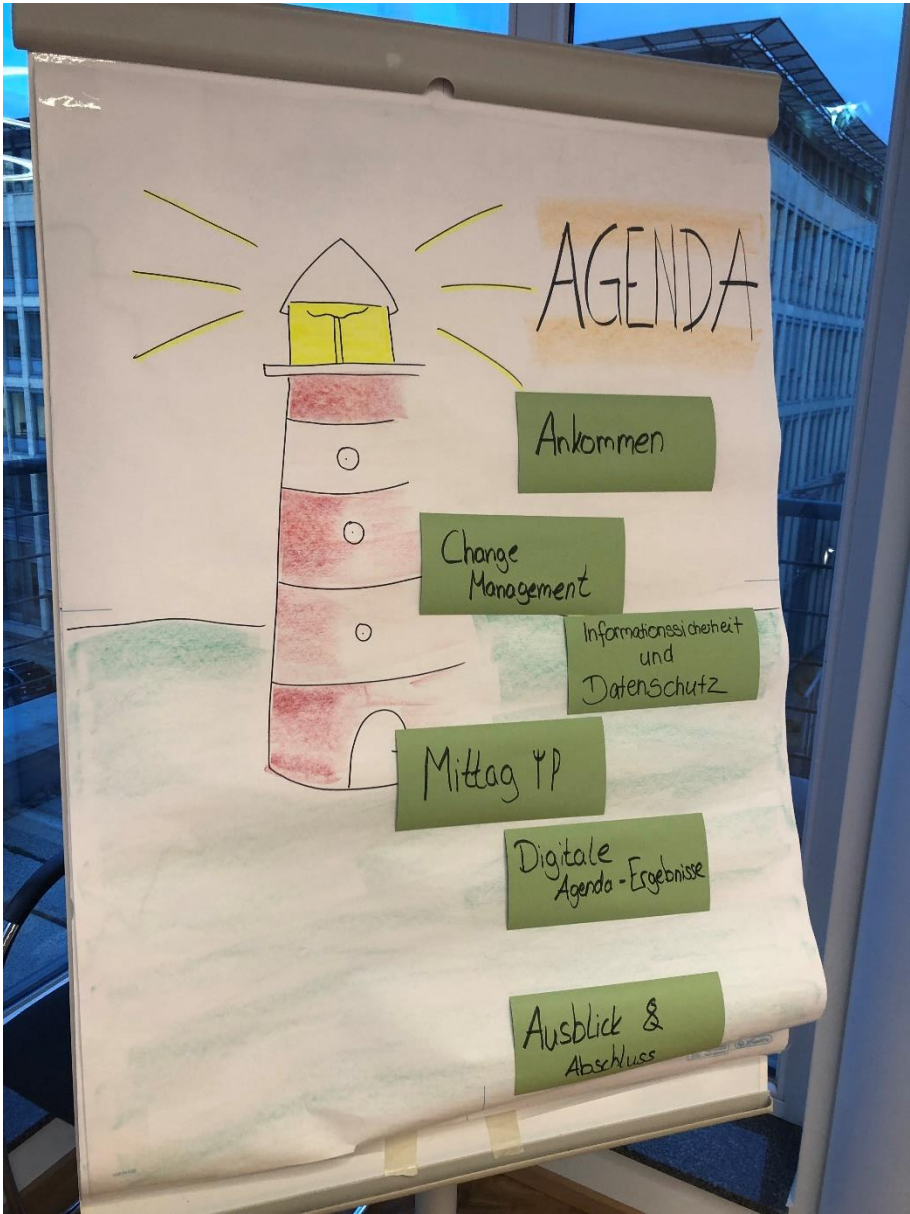 AGENDA
Ankommen
Change
Management
Informationssicherheit
und
Datenschutz
Mittag
Digitale
Agenda-Ergebnisse
Ausblick &
Abschluss